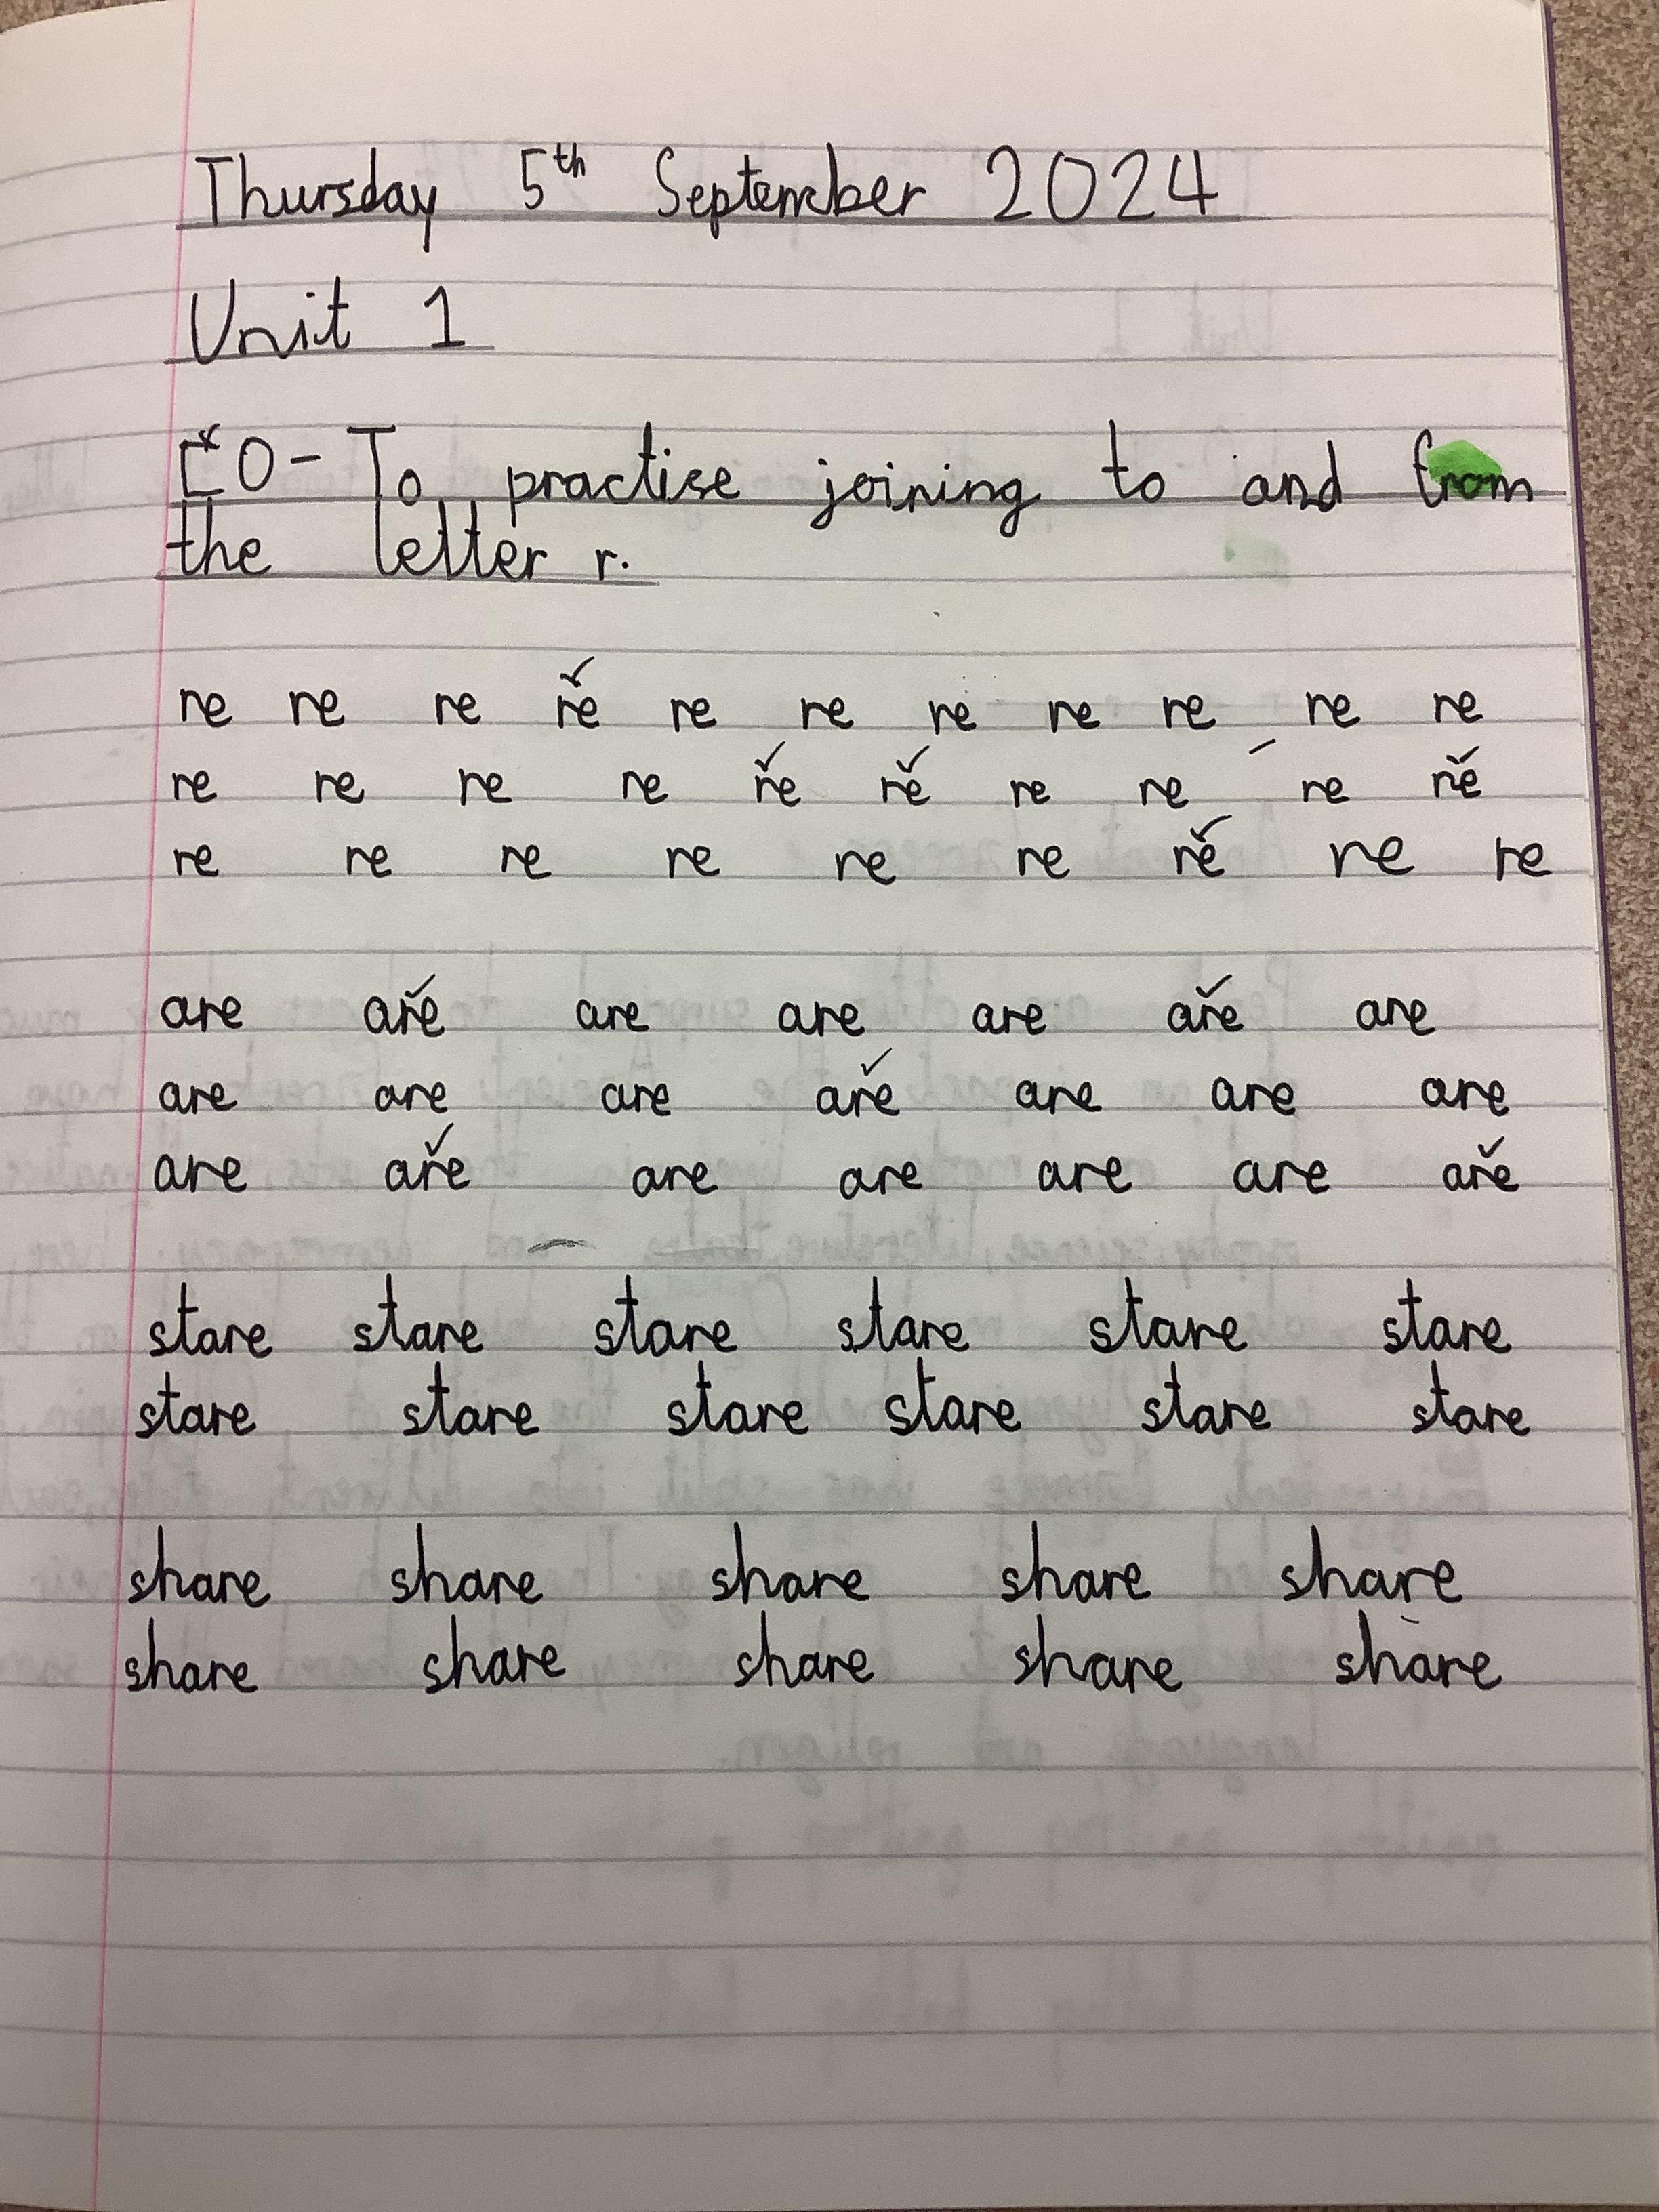 Thursday 5th September 2024
Unit 1
LO- To practise joining to and from
the letter r.
re re re re re re re re re re re
re re re re re re re re re re
re re re re re re re re re
are are are are are are are
are are are are are are are
are are are are are are are
stare stare stare stare stare stare
stare stare stare stare stare stare
share share share share share
share share share share share